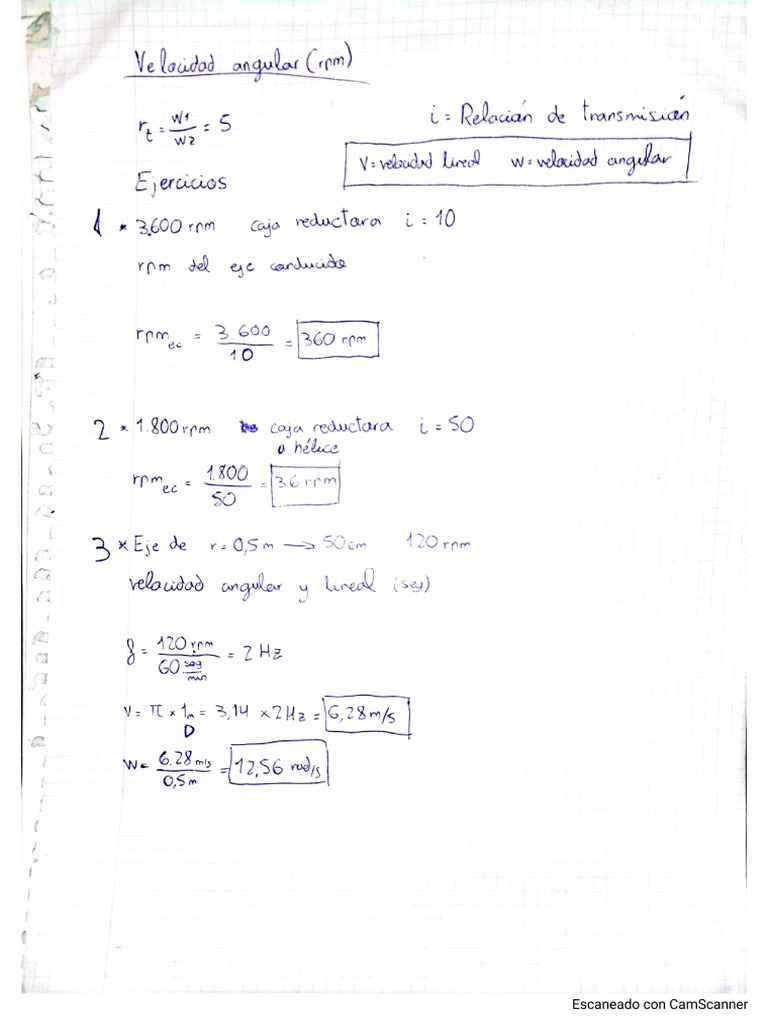 Velocidad angular (rpm)
r_t = W1/W2 = 5
i = Relación de transmisión
V = velocidad lineal    W = velocidad angular
Ejercicios
1 * 3.600 rpm caja reductora i = 10
rpm del eje conducido
rpm_ec = 3.600/10 = 360 rpm
2 * 1.800 rpm caja reductora i = 50
a hélice
rpm_ec = 1.800/50 = 36 rpm
3 * Eje de r = 0,5 m → 50 cm 120 rpm
velocidad angular y lineal (seg)
f = 120 rpm/60 seg/min = 2 Hz
V = π x 1m = 3,14 x 2 Hz = 6,28 m/s
D
W = 6.28 m/s/0,5 m = 12,56 rad/s
Escaneado con CamScanner